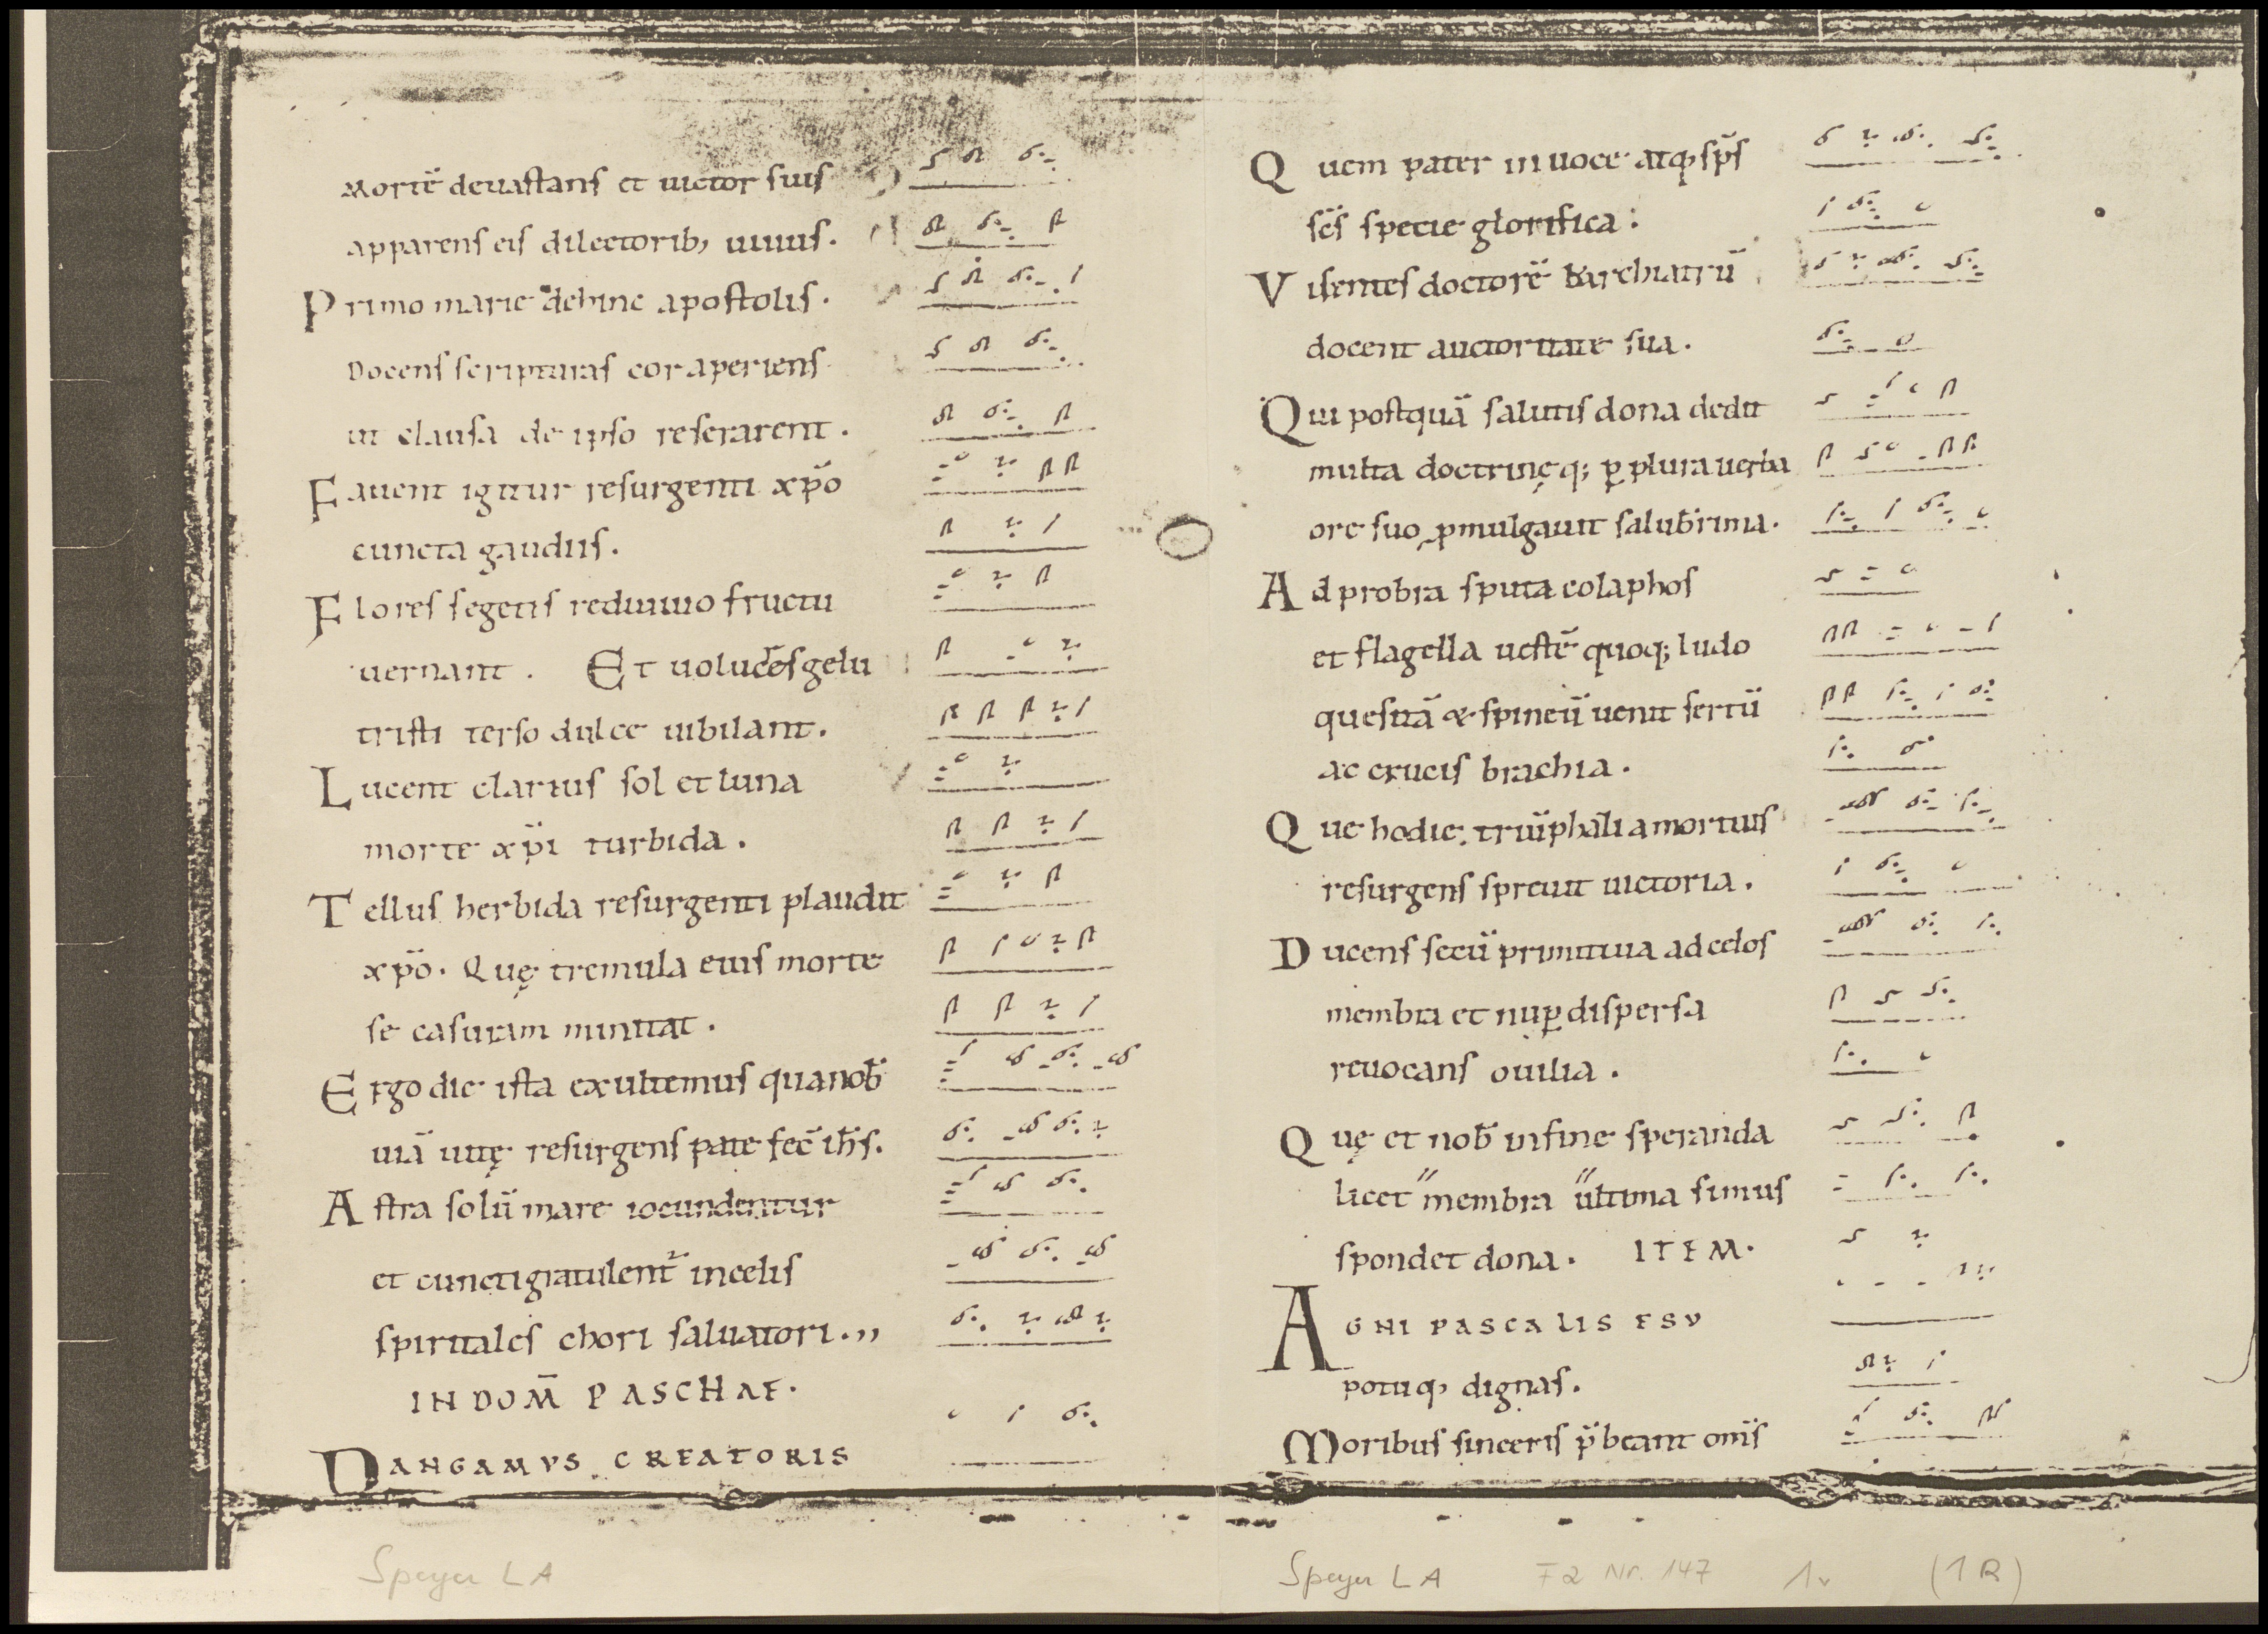 Mortē deuastans et uictor suis
apparens eis dilectorib; uiuus.
Primo marie dehinc apostolis.
Docens scripturas cor aperiens
ut clausa de ipso reserarent.
Fauent igitur resurgenti xp̄o
cuncta gaudiis.
Flores segetis rediuiuo fructu
uernant. Et uolucres gelu
tristi terso dulce iubilant.
Lucent clarius sol et luna
morte xp̄i turbida.
Tellus herbida resurgenti plaudit
xp̄o. Quę tremula eius morte
se casuram minitat.
Ergo die ista exultemus qua nob̄
uiā uitę resurgens patefec̄ ih̄s.
Astra solū mare iocundentur
et cuncti gratulent᷑ in celis
spiritales chori saluatori.,,
IN DOM̄ PASCHAE.
PANGAMVS CREATORIS
Quem pater in uoce atq; sp̄s
sc̄s specie glorifica.
Visentes doctorē & archiatrū
docent auctoritate sua.
Qui postquā salutis dona dedit
multa doctrinęq; ꝑ plura uerba
ore suo ꝓmulgauit salub̄rima.
Ad probra sputa colaphos
et flagella uestē quoq; ludo
quesitā & spineū uenit sertū
ac crucis brachia.
Que hodie, triūphali a mortuis
resurgens spreuit uictoria.
Ducens secū primitiua ad celos
membra et nuꝑ dispersa
reuocans ouilia.
Quę et nob̄ in fine speranda
licet "membra "ultima simus
spondet dona. ITEM.
AGNI PASCALIS ESV
potuq; dignas.
Moribus sinceris p̄beant om̄s
Speyer LA
Speyer LA F2 Nr. 147 1v (1R)